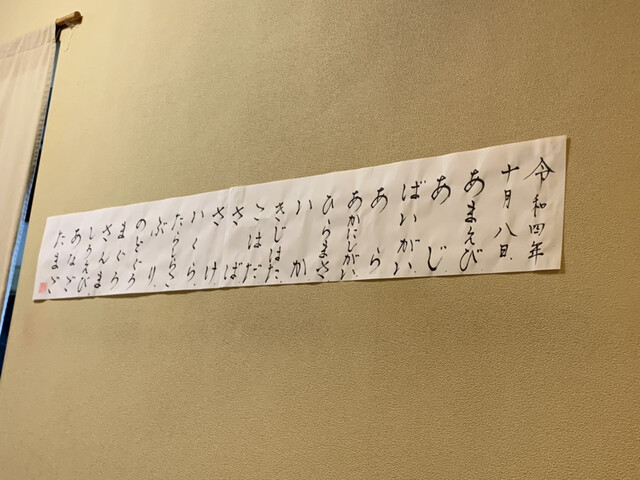 令和四年
十月八日
あまえび
あじ
ばいがい
あら
あかにしがい
ひらまさ
いか
きじはた
こはだ
さば
さけ
いくら
たららこ
ぶり
のどぐろ
まぐろ
さんま
しろえび
あなご
たまご